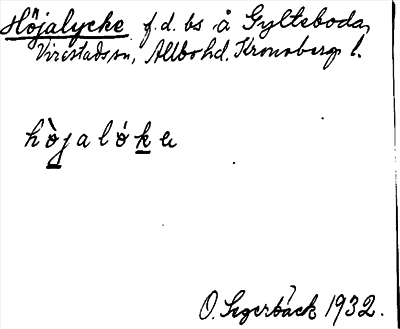 Höjalycke f.d. bs å Gylteboda,
Virestads sn, Allbo hd. Kronobergs l.
hòjalóke
O. Segerbäck 1932.